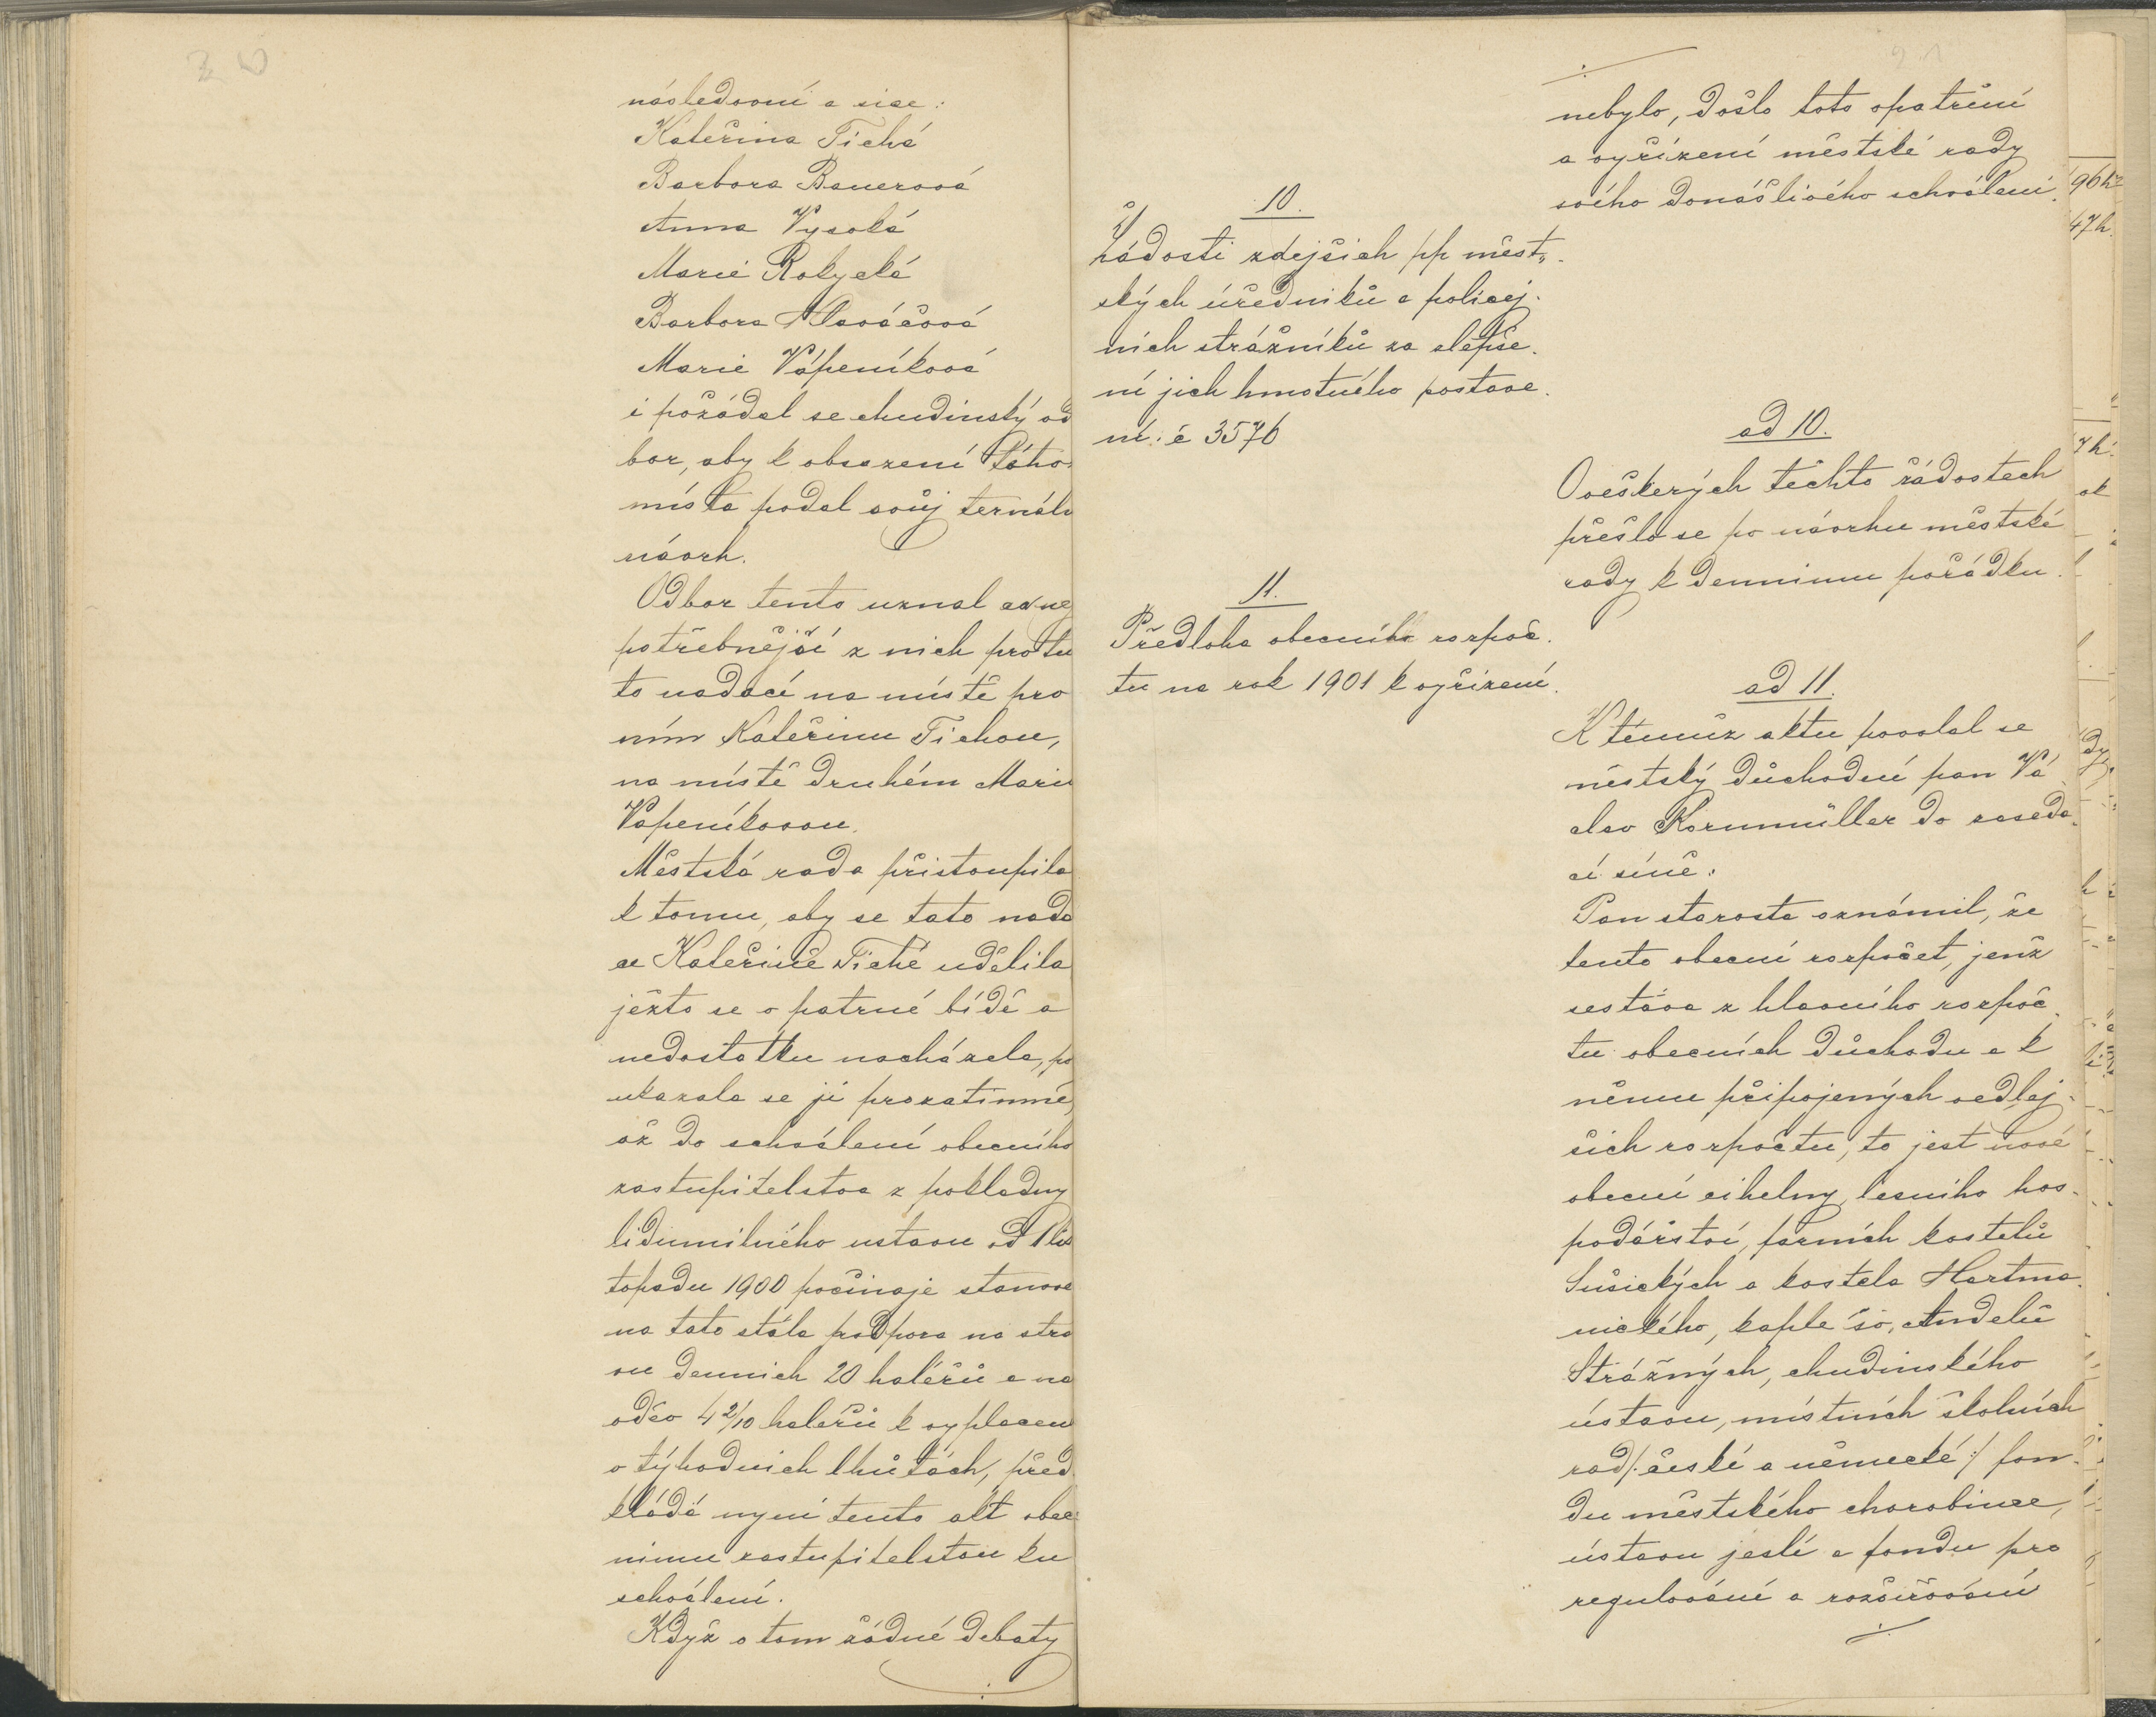 20
následovní a sice:
Kateřina Tichá
Barbora Bauerová
Anna Vysoká
Marie Rokycká
Barbora Hlaváčová
Marie Vápeníková
i požádal se chudinský od
bor, aby k obsazení tého
místa podal svůj ternální
návrh.
Odbor tento uznal co nej
potřebnější z nich pro tu
to nadací na místě prv
ním Kateřinu Tichou,
na místě druhém Marii
Vápeníkovou.
Městská rada přistoupila
k tomu, aby se tato nada
ce Kateřině Tiché udělila
ježto se v patrné bídě a
nedostatku nacházela, po
ukazala se jí prozatimně,
až do schválení obecního
zastupitelstva z pokladny
lidumilného ustavu od 1 lis
topadu 1900 počínaje stanove
na tato stálá podpora na stra
vu denních 20 haléřů a na
oděv 4 2/10 haleřů k vyplacení
v týhodních lhůtách, před
kládá nyní tento akt obec
nímu zastupitelstvu ku
schválení.
Když o tom žádné debaty
./.
10.
Žádosti zdejších pp měst„
ských úředníků a policej-
ních strážníků za zlepše-
ní jich hmotného postave-
ní. č 3576
11.
Předloha obecního rozpoč-
tu na rok 1901 k vyřízení.
21
./.
nebylo, došlo toto opatření
a vyřízení městské rady
svého donášlivého schválení.
ad 10.
O veškerých těchto žádostech
přešlo se po návrhu městské
rady k dennímu pořádku.
ad 11.
K témuž aktu povolal se
městský důchodní pan Vá
clav Kornmüller do zaseda-
cí síně:
Pan starosta oznámil, že
tento obecní rozpočet, jenž
sestává z hlavního rozpoč-
tu obecních důchodu a k
němu připojených vedlej-
ších rozpočtu, to jest nové
obecní cihelny, lesního hos-
podářství, farních kostelů
Sušických a kostela Hartma-
nického, kaple sv. Andělů
Strážných, chudinského
ústavu, místních školních
rad /: české a německé :/ fon-
du městského chorobince,
ústavu jeslí a fondu pro
regulování a rozšiřování
./.
96 h
47 h.
7 h.
ok